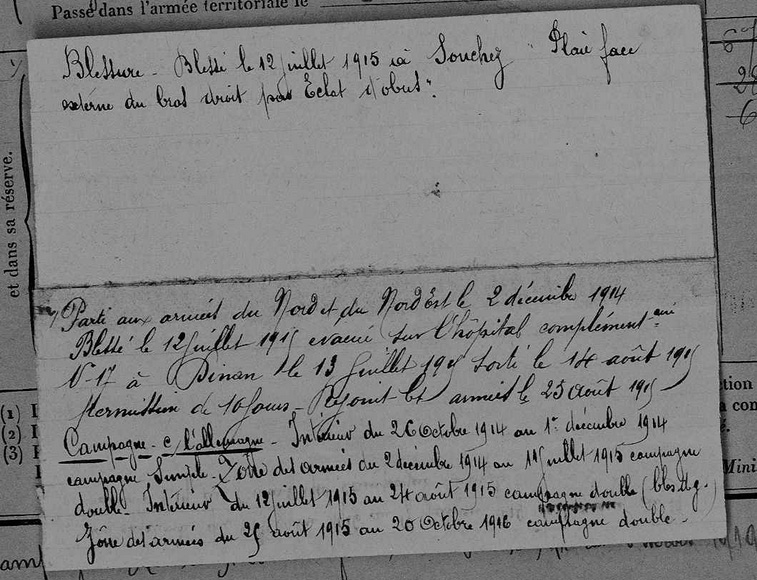 Passé dans l'armée territoriale le
Blessure - Blessé le 12 juillet 1915 à Souchez "Plaie face
externe du bras droit par Éclat d'obus".
et dans sa réserve.
Parti aux armées du Nord et du Nord Est le 2 décembre 1914
Blessé le 12 juillet 1915 évacué sur l'hôpital complément re
N° 17 à Dinan le 13 juillet 1915 sorti le 14 août 1915
Permission de 10 jours - Rejoint les armées le 25 août 1915
Campagne - c/ l'allemagne - Intérieur du 26 Octobre 1914 au 1er décembre 1914
campagne Simple. Zone des armées du 2 décembre 1914 au 11 juillet 1915 campagne
double. Intérieur du 12 juillet 1915 au 24 août 1915 campagne double (bles. de g.
Zône des armées du 25 août 1915 au 20 Octobre 1916 campagne double -
(1)
(2)
(3)